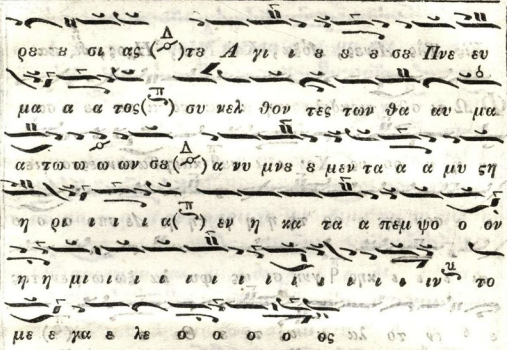 ρε ε ε σι ας (Δ) τȣ Α γι ι ȣ ȣ ȣ σȣ Πνε ευ
μα α α τος (π) συ νελ θον τες των θα αυ μα
α τω ω ω ων σȣ (Δ) α νυ μνȣ ȣ μεν τα α α μυ ςη
η ρι ι ι ι α (π) εν η κα τα α πεμ ψο ο ον
η η μι ι ι ι ι ι ι ι ι ι ι ι ιν το
με ε γα ε λε ο ο ο ο ος